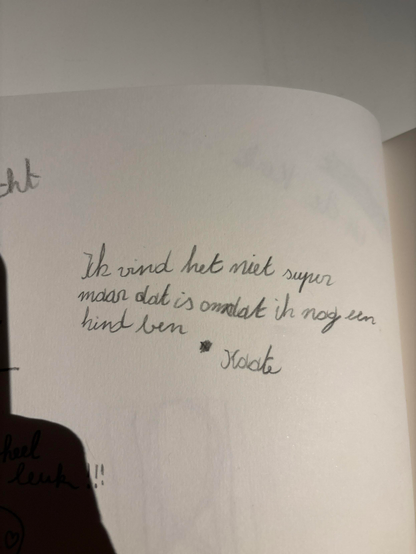 cht
Ik vind het niet super
maar dat is omdat ik nog een
kind ben
Kaate
heel
leuk !!